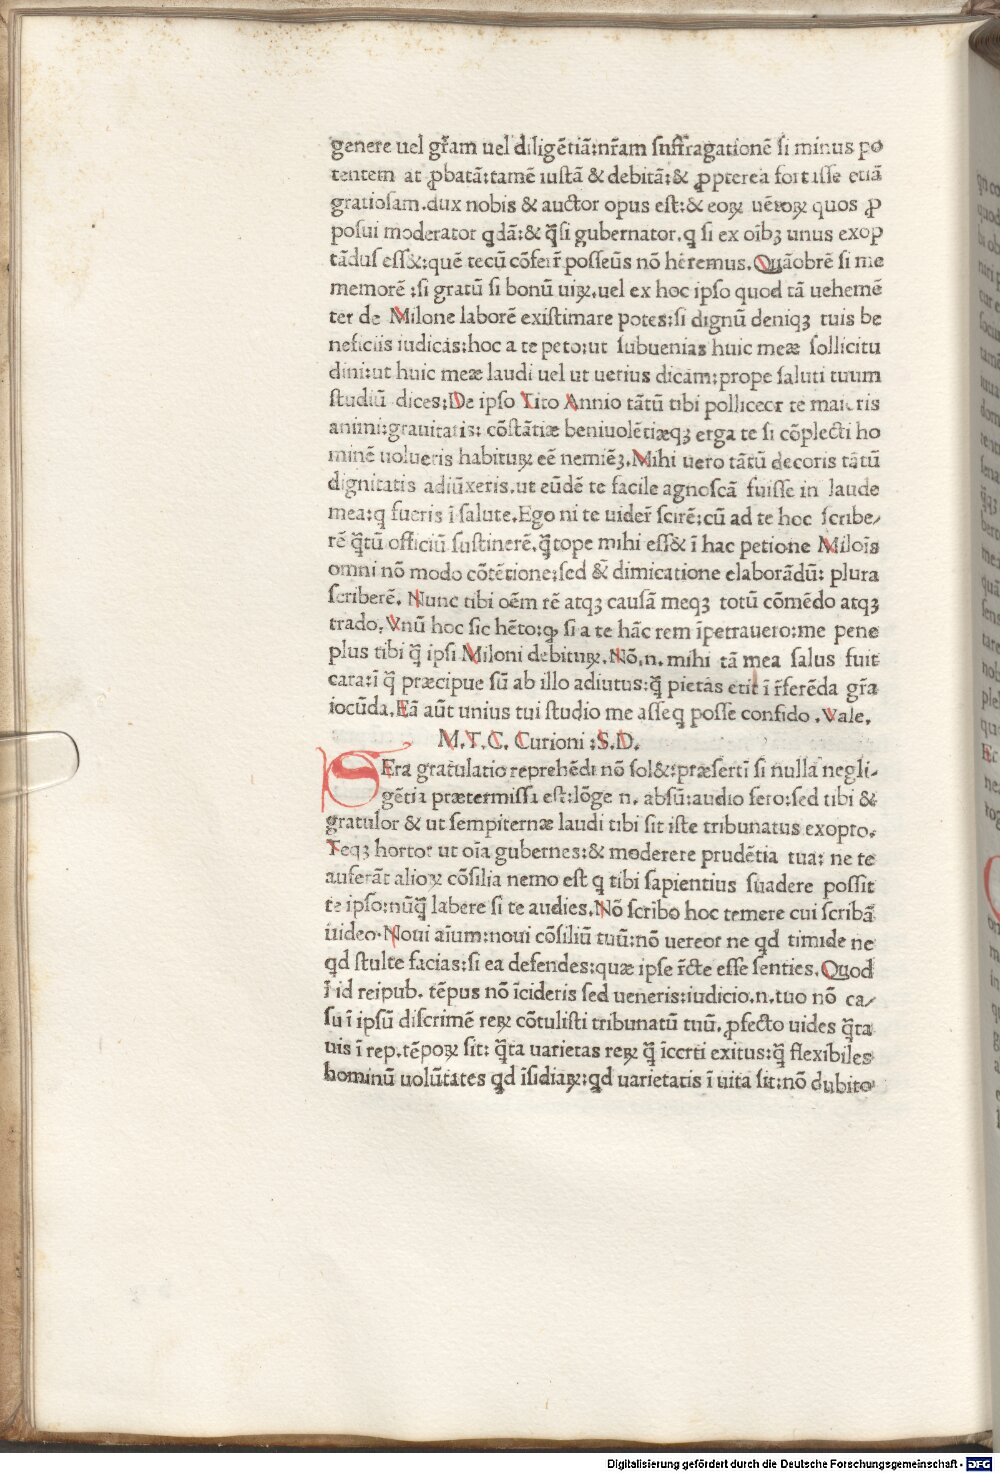 genere uel gr̃am uel diligẽtiã:nr̃am suffragationẽ si minus po
tentem at ꝓbatã:tamẽ iustã & debitã:& ꝓpterea fortisse etiã
gratiosam.dux nobis & auctor opus est:& eoꝝ uẽtoꝝ quos ꝓ
posui moderator qdã:& q̃si gubernator.q si ex oĩbꝫ unus exop
tãdus ess&:quẽ tecũ cõferr̃ possẽus nõ hẽremus.Quãobrẽ si me
memorẽ :si gratũ si bonũ uiꝝ.uel ex hoc ipso quod tã uehemẽ
ter de Milone laborẽ existimare potes:si dignũ deniqꝫ tuis be
neficiis iudicas:hoc a te peto:ut subuenias huic meæ sollicitu
dini:ut huic meæ laudi uel ut uerius dicam:prope saluti tuum
studiũ dices:De ipso Tito Annio tãtũ tibi polliceor te maioris
animi:grauitatis: cõstãtiæ beniuolẽtiæqꝫ erga te si cõplecti ho
minẽ uolueris habituꝝ eẽ neminẽ.Mihi uero tãtũ decoris tãtũ
dignitatis adiũxeris.ut eũdẽ te facile agnoscã fuisse in laude
mea:q fueris ĩ salute.Ego ni te uider̃ scirẽ:cũ ad te hoc scribe/
rẽ q̃tũ officiũ sustinerẽ.q̃tope mihi ess& ĩ hac petione Miloĩs
omni nõ modo cõtẽtione:sed &̃ dimicatione elaborãdũ: plura
scriberẽ. Nunc tibi oẽm rẽ atqꝫ causã meqꝫ totũ cõmẽdo atqꝫ
trado.Vnũ hoc sic hẽto:ꝙ si a te hãc rem ĩpetrauero:me pene
plus tibi q̃ ipsi Miloni debituꝝ.Nõ.n. mihi tã mea salus fuit
cara:ĩ q̃ præcipue sũ ab illo adiutus:q̃ pietas erit ĩ r̃ferẽda gr̃a
iocũda.Eã aũt unius tui studio me asseq posse confido .Vale.
M.T.C. Curioni :S.D.
SEra gratulatio reprehẽdi nõ sol&:præserti̇̃ si nulla negli-
gẽtia prætermissa est:lõge n. absũ:audio sero:sed tibi &
gratulor & ut sempiternæ laudi tibi sit iste tribunatus exopto.
Teqꝫ hortor ut oĩa gubernes:& moderere prudẽtia tua: ne te
auferãt alioꝝ cõsilia nemo est q tibi sapientius suadere possit
te ipso:nũq̃ labere si te audies.Nõ scribo hoc temere cui scribã
uideo.Noui aĩum:noui cõsiliũ tuũ:nõ uereor ne qd timide ne
qd stulte facias:si ea defendes:quæ ipse r̃cte esse senties.Quod
ĩ id reipub. tẽpus nõ ĩcideris sed ueneris:iudicio.n.tuo nõ ca/
su ĩ ipsũ discrimẽ reꝝ cõtulisti tribunatũ tuũ. ꝓfecto uides q̃ta
uis ĩ rep.tẽpoꝝ sit: q̃ta uarietas reꝝ q̃ ĩcerti exitus:q̃ flexibiles
hominũ uolũtates qd ĩsidiaꝝ:qd uarietatis ĩ uita sit:nõ dubito
Digitalisierung gefördert durch die Deutsche Forschungsgemeinschaft - DFG